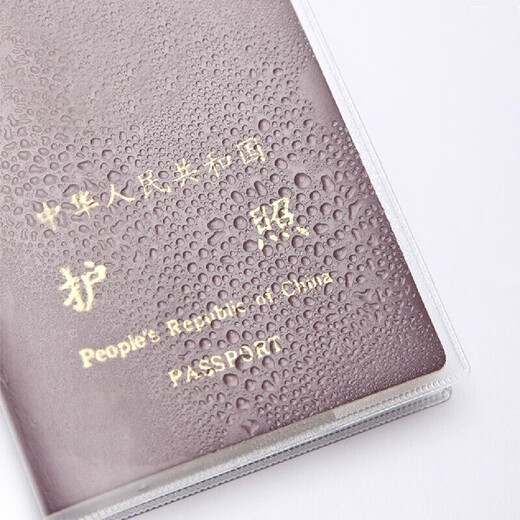 中华人民共和国
护 照
People's Republic of China
PASSPORT